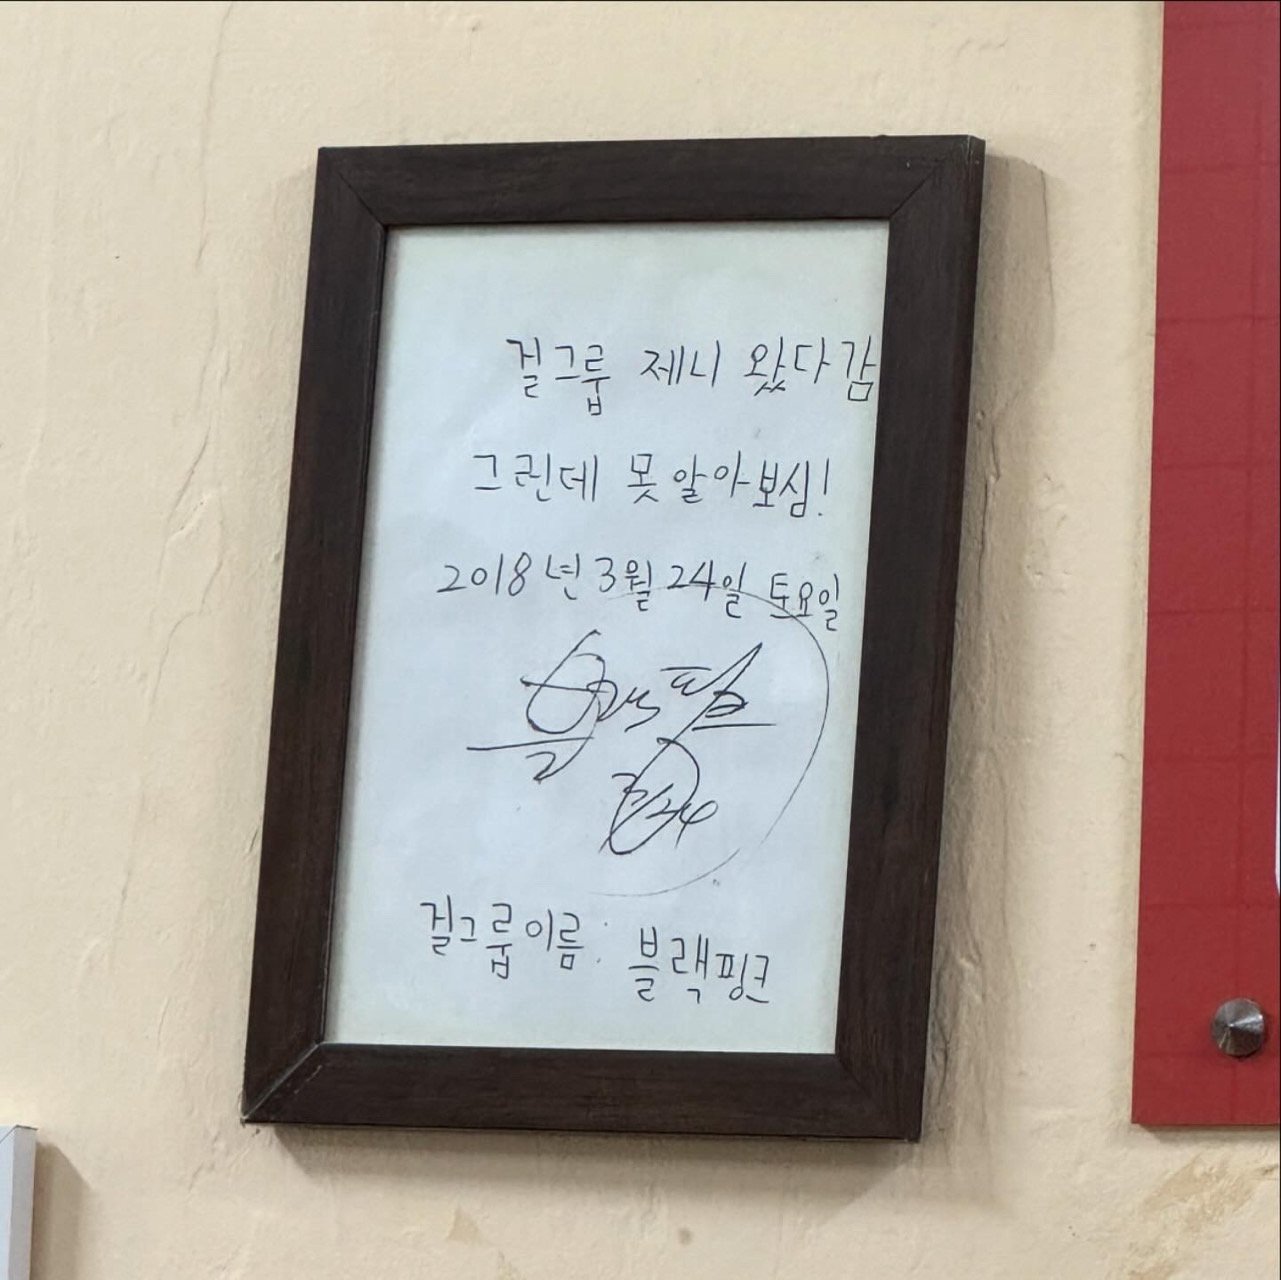 걸그룹 제니 왔다감
그린데 못 알아보심!
2018년 3월 24일 토요일
걸그룹이름: 블랙핑크